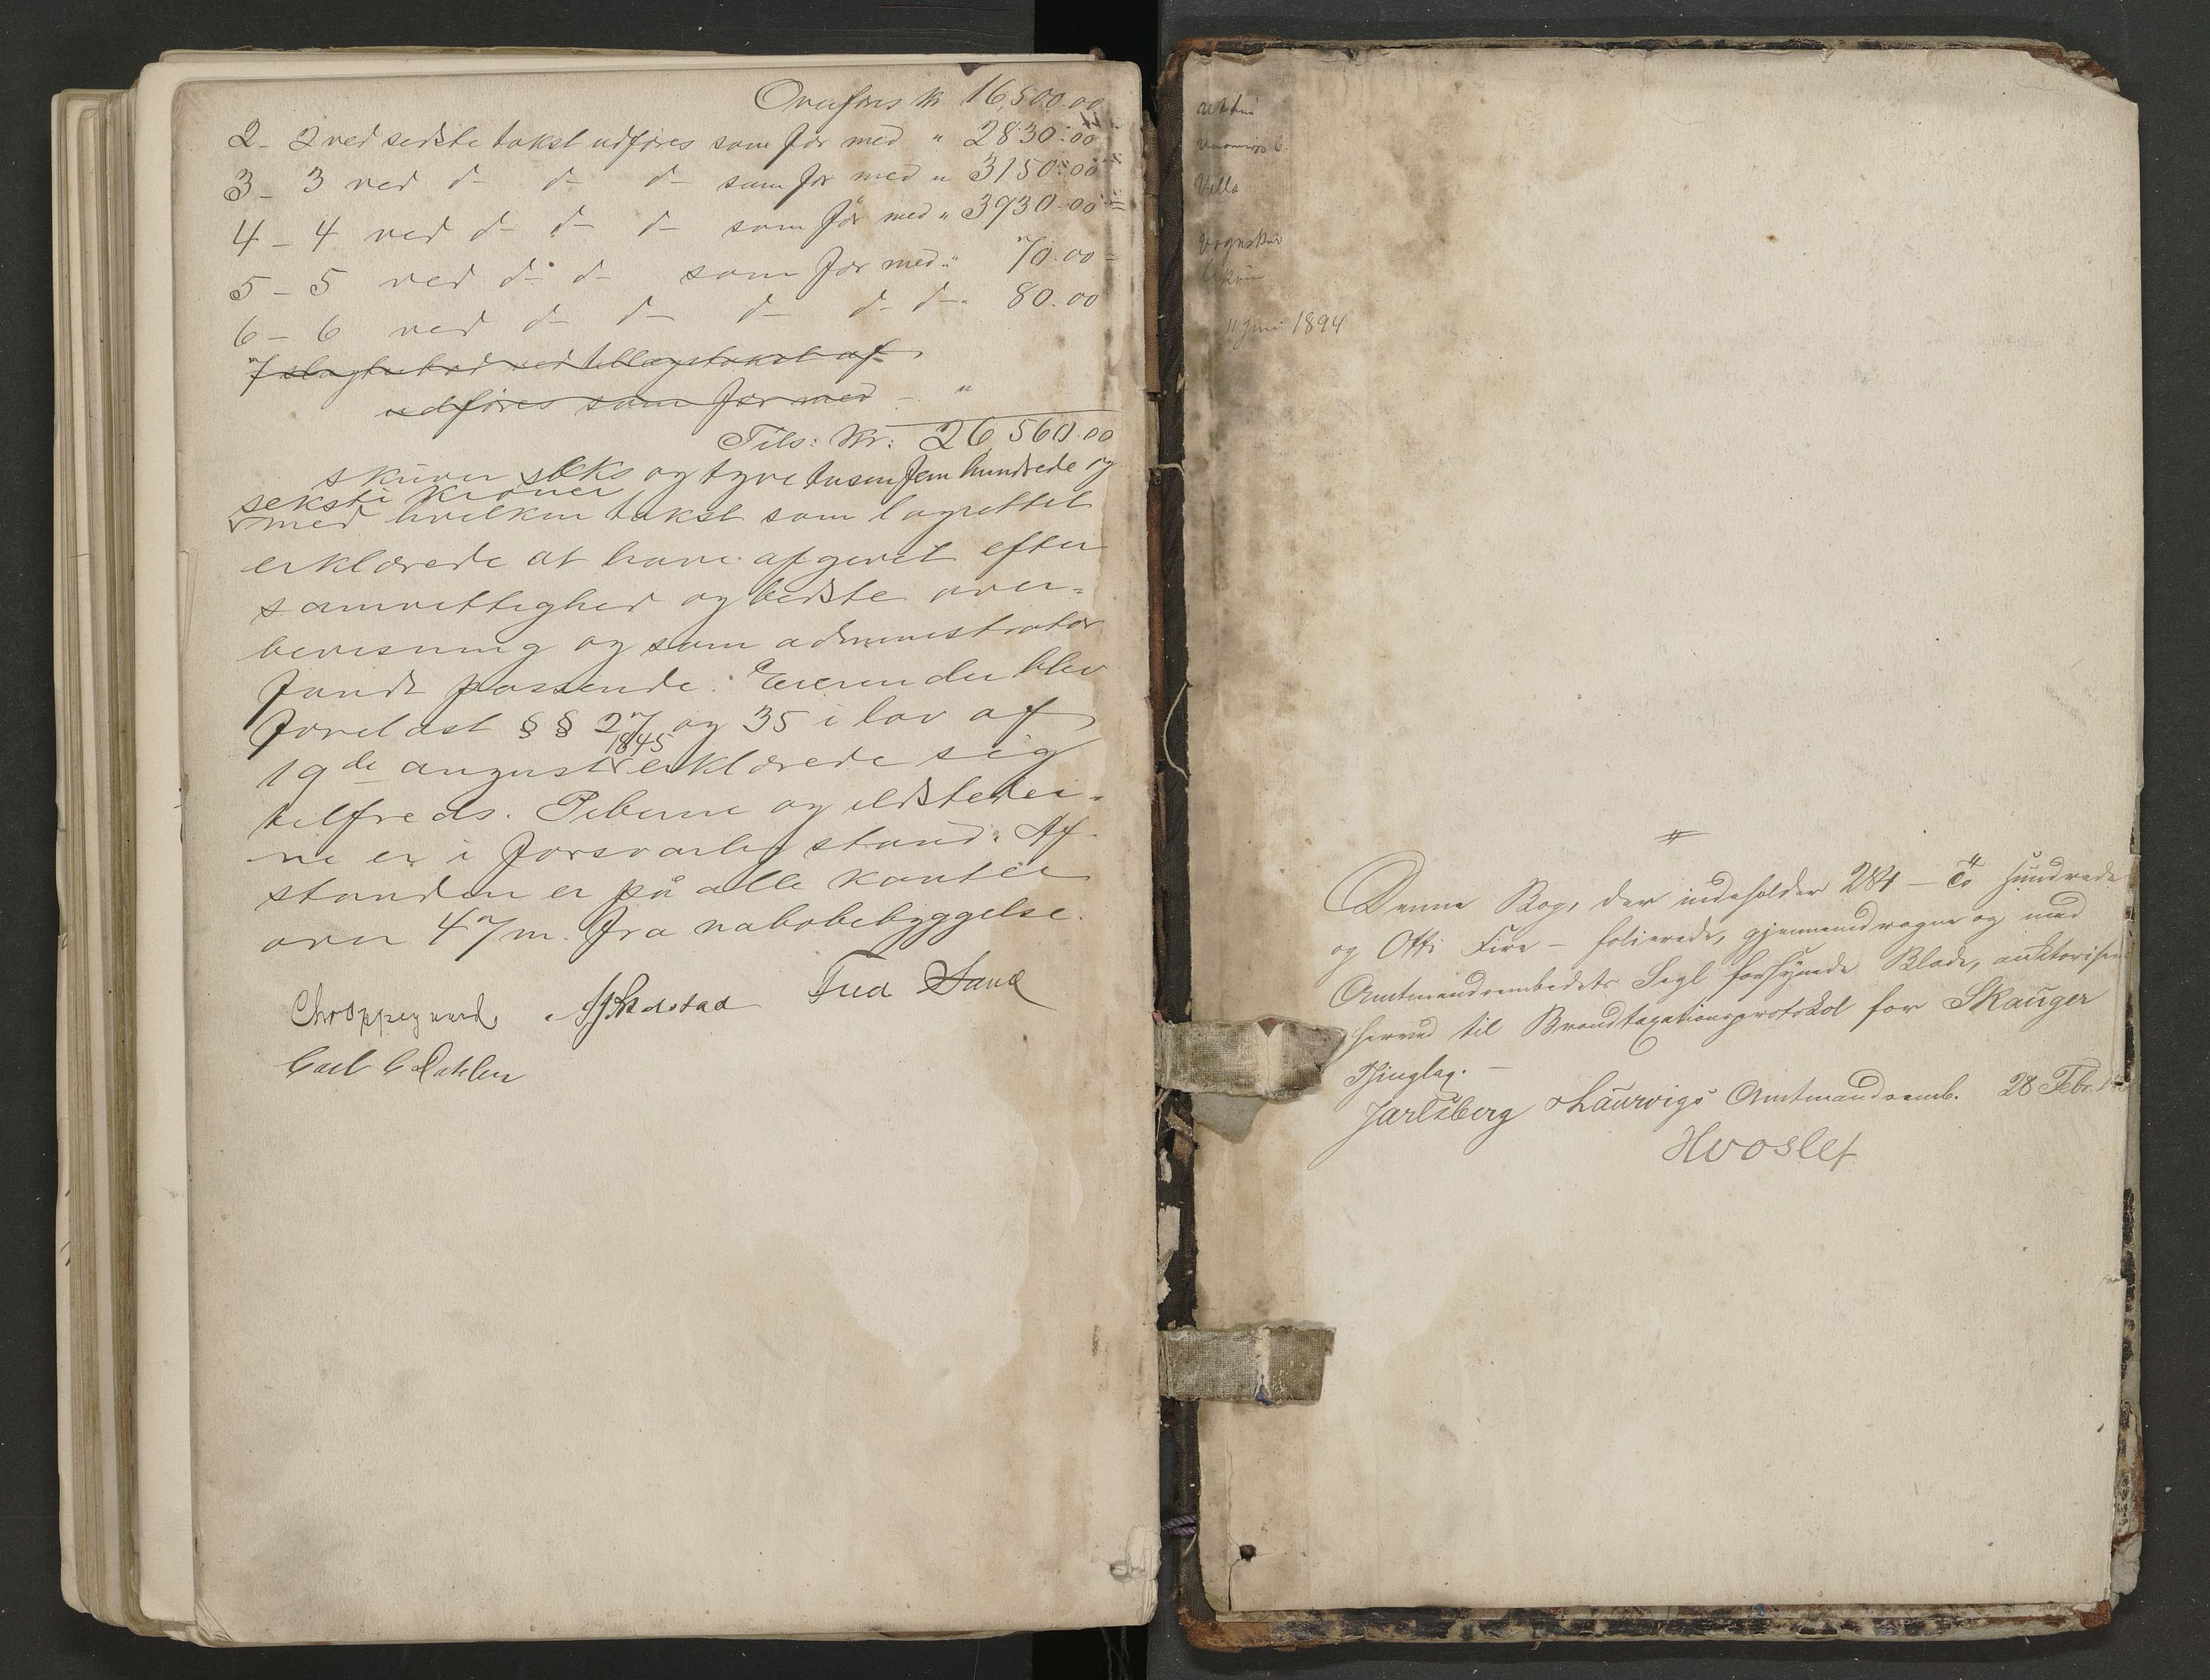 Overføres kr 16,500.00
2 - 2 ved sidste takst udføres som før med " 2830:00
3 - 3 ved d- d- d- som før med " 3150:00
4 - 4 ved d- d- d- som før med " 3930.00
5 - 5 ved d- d- som før med " 70.00
6 - 6 ved d- d- d- d- d- " 80.00
7 ved tillægstakst af
udføres som før med - "
Tils: Kr: 26560.00
skriver seks og tyve tusen fem hundrede og
seksti kroner
med hvilken takst som lagrettet
erklærede at have afgivet efter
samvittighed og bedste over=
bevisning og som administrator
fandt passende. Eieren der blev
forelæst §§ 27 og 35 i lov af
19de august 1845 erklærede sig
tilfreds. Piberne og ildsteder=
ne er i forsvarlig stand. Af-
standen er på alle kanter
over 47 m. fra nabobebyggelse.
Fred Sand
Carl C Dahlen
Villa
Vognskur
11 Juni 1894
Denne Bog, der indeholder 284 - To Hundrede
og Otti Fire - folierede, gjennemdragne og med
Amtmandsembedets Segl forsynede Blade, auktoriseres
herved til Brandtaxationsprotokol for Skauger
Thinglag. -
Jarlsberg & Laurvigs Amtmandsemb. 28 Febr.
Hvoslef